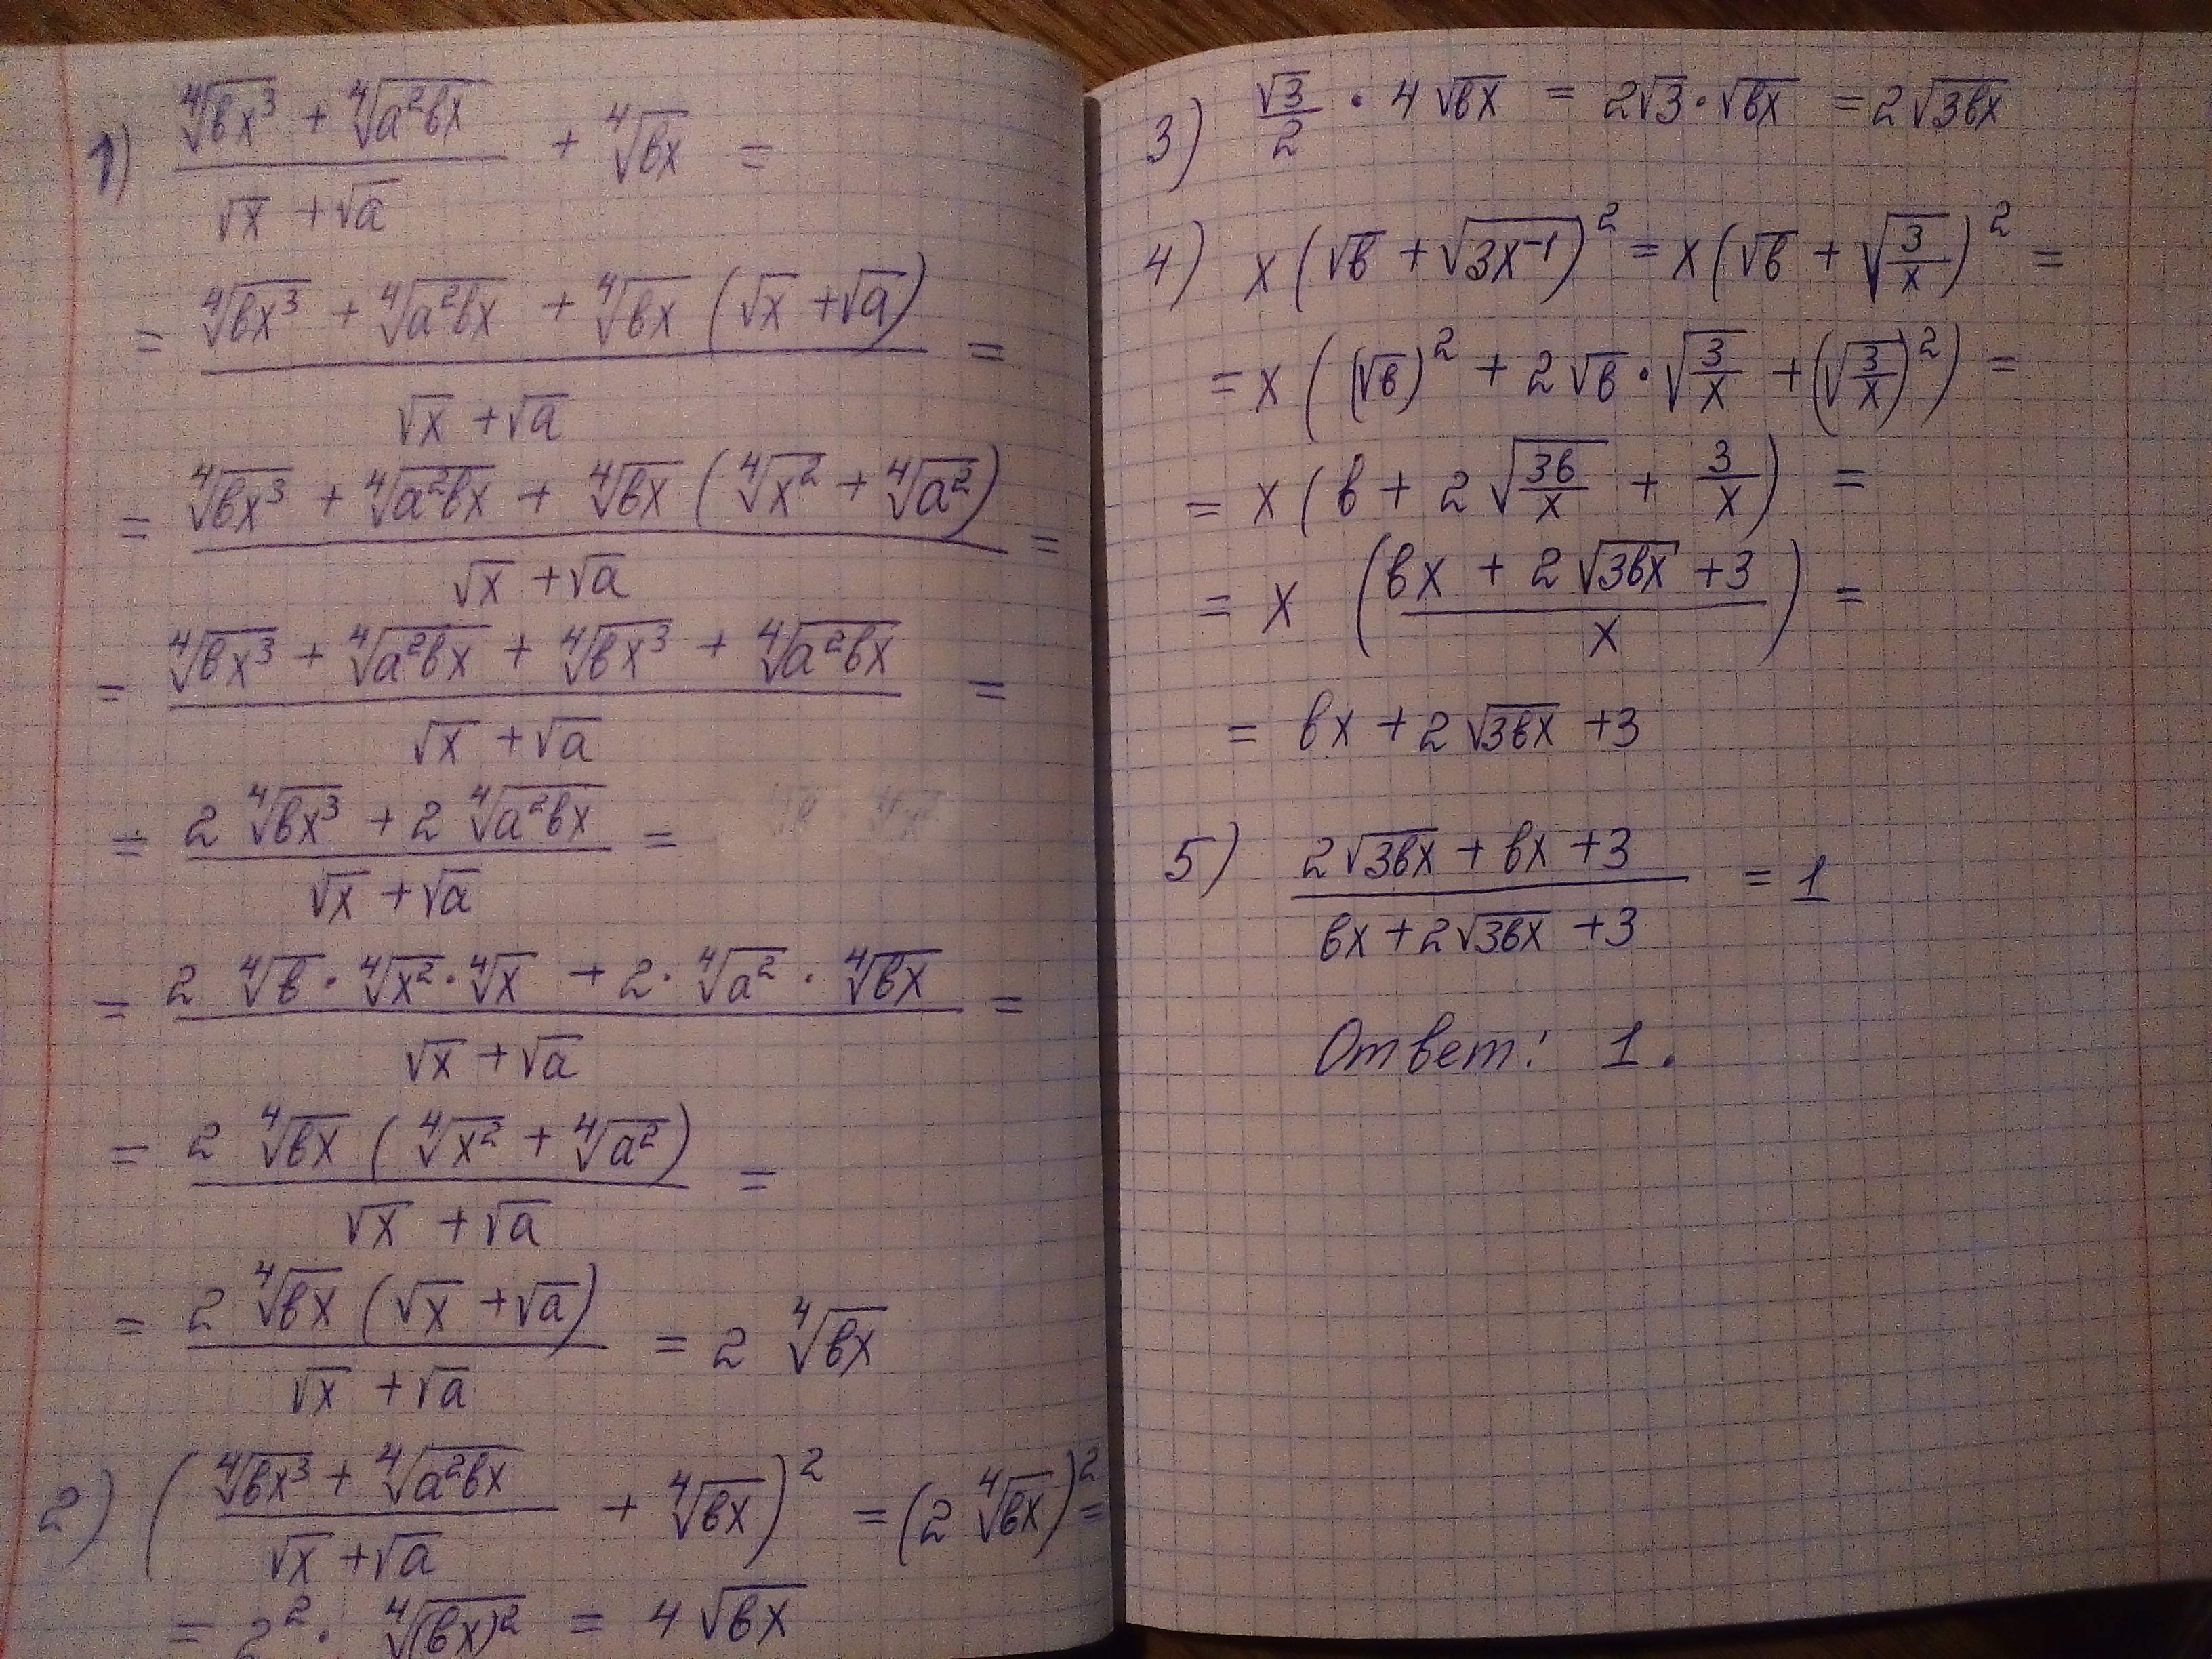 1) (⁴√(вx³) + ⁴√(a²вx))/(√x + √a) + ⁴√(вx) =
= (⁴√(вx³) + ⁴√(a²вx) + ⁴√(вx) (√x + √a))/(√x + √a) =
= (⁴√(вx³) + ⁴√(a²вx) + ⁴√(вx) (⁴√(x²) + ⁴√(a²)))/(√x + √a) =
= (⁴√(вx³) + ⁴√(a²вx) + ⁴√(вx³) + ⁴√(a²вx))/(√x + √a) =
= (2 ⁴√(вx³) + 2 ⁴√(a²вx))/(√x + √a) =
= (2 ⁴√в · ⁴√(x²) · ⁴√x + 2 · ⁴√(a²) · ⁴√(вx))/(√x + √a) =
= (2 ⁴√(вx) (⁴√(x²) + ⁴√(a²)))/(√x + √a) =
= (2 ⁴√(вx) (√x + √a))/(√x + √a) = 2 ⁴√(вx)
2) ((⁴√(вx³) + ⁴√(a²вx))/(√x + √a) + ⁴√(вx))² = (2 ⁴√(вx))² =
= 2² · ⁴√((вx)²) = 4 √(вx)
3) √3/2 · 4 √(вx) = 2√3 · √(вx) = 2 √(3вx)
4) x (√в + √(3x⁻¹))² = x (√в + √(3/x))² =
= x ((√в)² + 2 √в · √(3/x) + (√(3/x))²) =
= x (в + 2 √(3в/x) + 3/x) =
= x ((вx + 2 √(3вx) + 3)/x) =
= вx + 2 √(3вx) + 3
5) (2√(3вx) + вx + 3)/(вx + 2√(3вx) + 3) = 1
Ответ: 1.